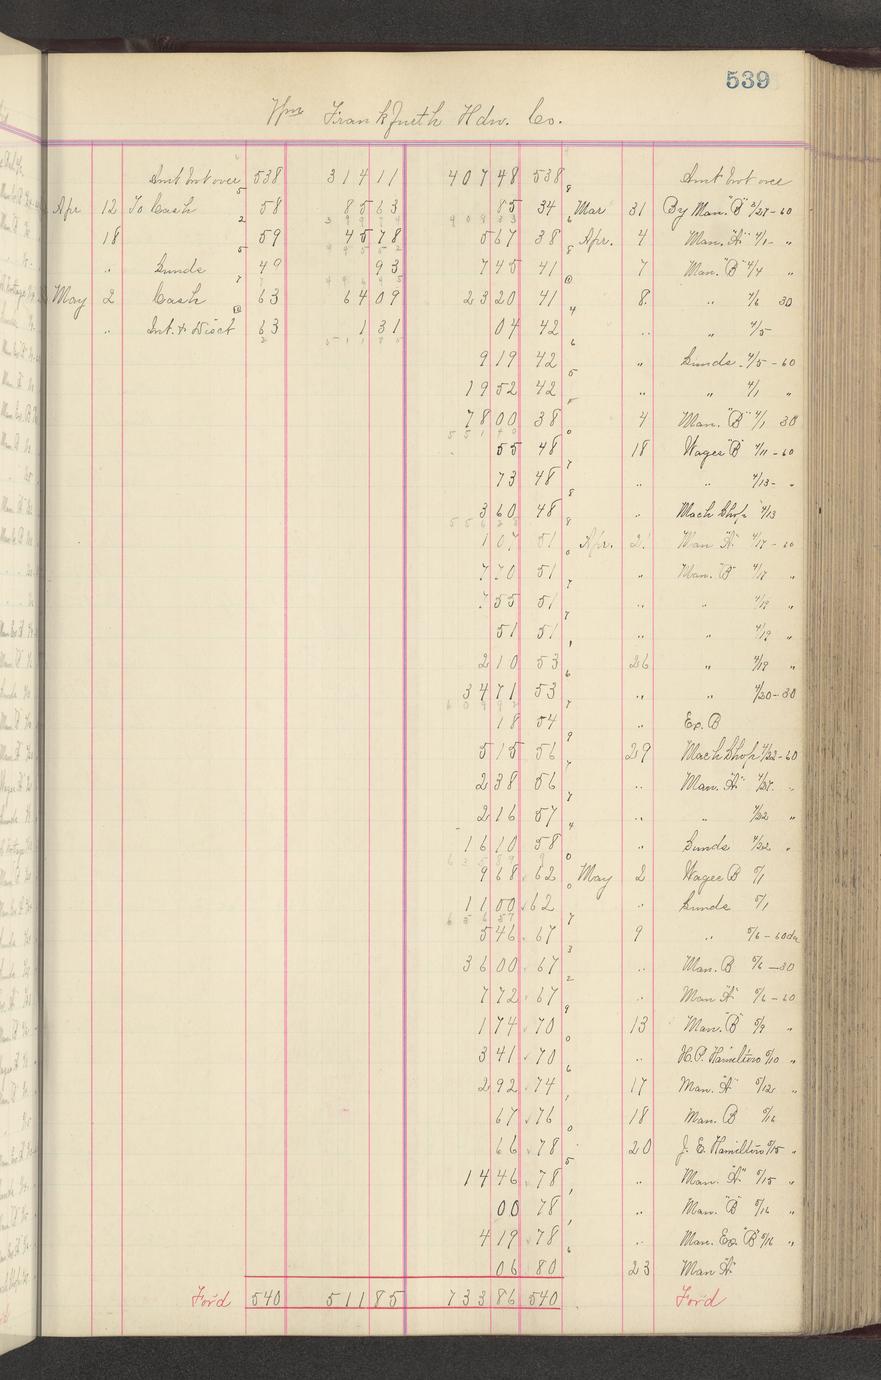 539
Wm Frankfurth Hdw. Co.
Amt brot over 538 314 11 407 48 538 Amt brot over
Apr 12 To Cash 58 85 63 85 34 Mar 31 By Man. "B" 3/27-60
18 59 45 78 5 67 38 Apr. 4 Man. "A" 4/1 - "
" Sunds 49 93 7 45 41 7 Man. "B" 4/4 "
May 2 Cash 63 64 09 23 20 41 8 " 4/6 30
" Int. & Disct 63 1 31 04 42 " " 4/5
9 19 42 " Sunds. 4/5 - 60
19 52 42 " " 4/1 "
78 00 38 4 Man. "B" 4/1 30
55 48 18 Wages "B" 4/11 - 60
73 48 " " 4/13 - "
3 60 48 " Mach Shop 4/13
1 07 51 Apr. 21 Man "A" 4/17 - 60
7 70 51 " Man. "B" 4/17 "
55 51 " " 4/19 "
51 51 " " 4/19 "
2 10 53 26 " 4/19 "
34 71 53 " " 4/20 - 30
18 54 " Ex. B
5 15 56 29 Mach Shop 4/22 - 60
2 38 56 " Man. "A" 4/27 "
2 16 57 " " 4/22 "
16 10 58 " Sunds 4/22 "
9 68 62 May 2 Wages B 5/1
11 00 62 " Sunds 5/1
5 46 67 9 " 5/6 - 60da
36 00 67 " Man. B 5/6 - 30
7 72 67 " Man "A" 5/6 - 60
1 74 70 13 Man. "B" 5/9 "
3 41 70 " H.P. Hamilton 5/10 "
2 92 74 17 Man. "A" 5/12 "
67 76 18 Man. B 5/16
66 78 20 J. E. Hamilton 5/15 "
14 46 78 " Man. "A" 5/15 "
00 78 " Man. "B" 5/16 "
4 19 78 " Man. Ex. "B" 5/16 "
06 80 23 Man "A"
Ford 540 511 85 733 86 540 Ford